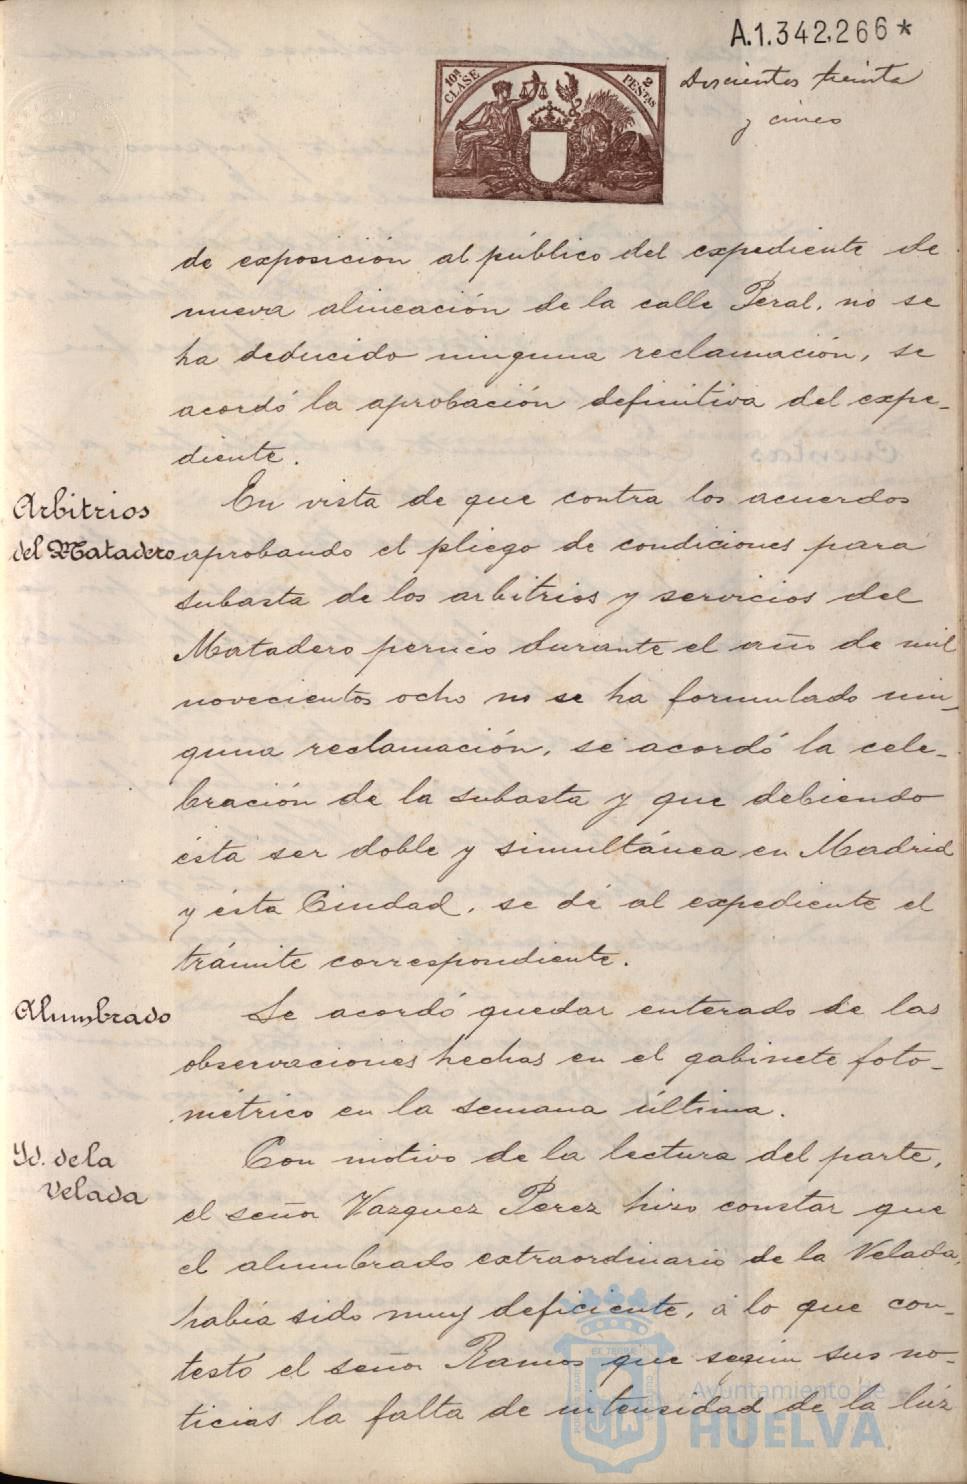 A.1.342.266*
10ª CLASE
2 PESTAS
Doscientos treinta
y cinco
de exposición al público del expediente de
nueva alineación de la calle Peral, no se
ha deducido ninguna reclamación, se
acordó la aprobación definitiva del expe-
diente.
Arbitrios
del Matadero
En vista de que contra los acuerdos
aprobando el pliego de condiciones para
subasta de los arbitrios y servicios del
Matadero pernico durante el año de mil
novecientos ocho no se ha formulado nin-
guna reclamación, se acordó la cele-
bración de la subasta y que debiendo
ésta ser doble y simultánea en Madrid
y ésta Ciudad, se dé al expediente el
trámite correspondiente.
Alumbrado
Se acordó quedar enterado de las
observaciones hechas en el gabinete foto-
métrico en la semana última.
Yd. de la
Velada
Con motivo de la lectura del parte,
el señor Vazquez Perez hizo constar que
el alumbrado extraordinario de la Velada,
había sido muy deficiente, á lo que con-
testó el señor Ramos que según sus no-
ticias la falta de intensidad de la luz
Ayuntamiento de
HUELVA